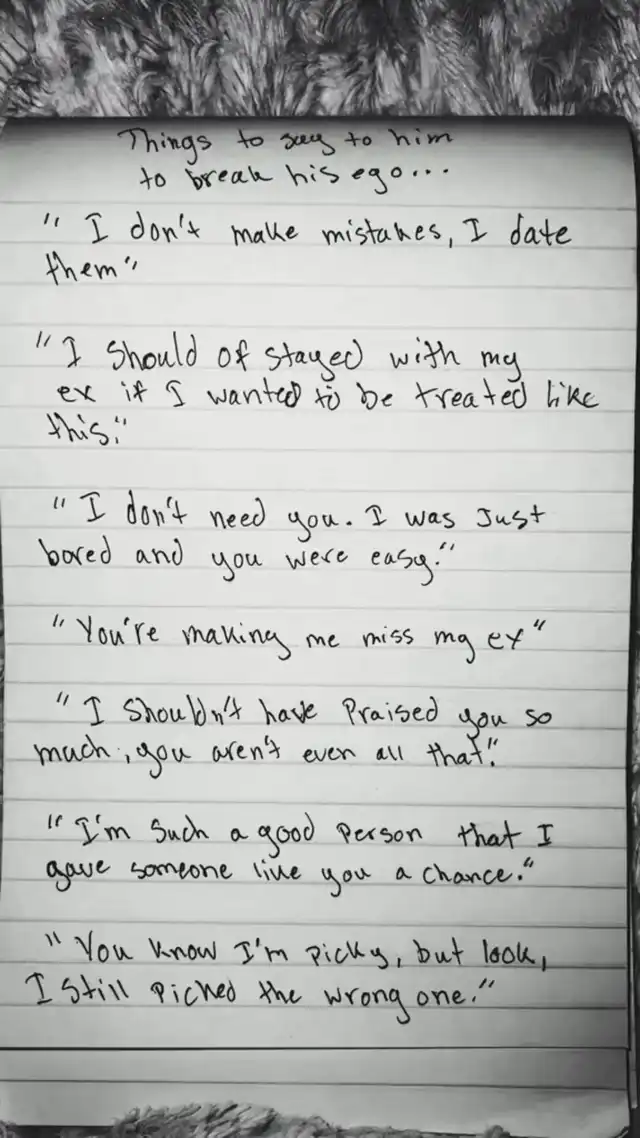 Things to say to him
to break his ego...
" I don't make mistakes, I date
them"
"I should of stayed with my
ex if I wanted to be treated like
this."
"I don't need you. I was Just
bored and you were easy."
"You're making me miss my ex"
"I shouldn't have Praised you so
much, you aren't even all that."
"I'm Such a good Person that I
gave someone like you a chance."
"You know I'm picky, but look,
I Still Picked the wrong one."